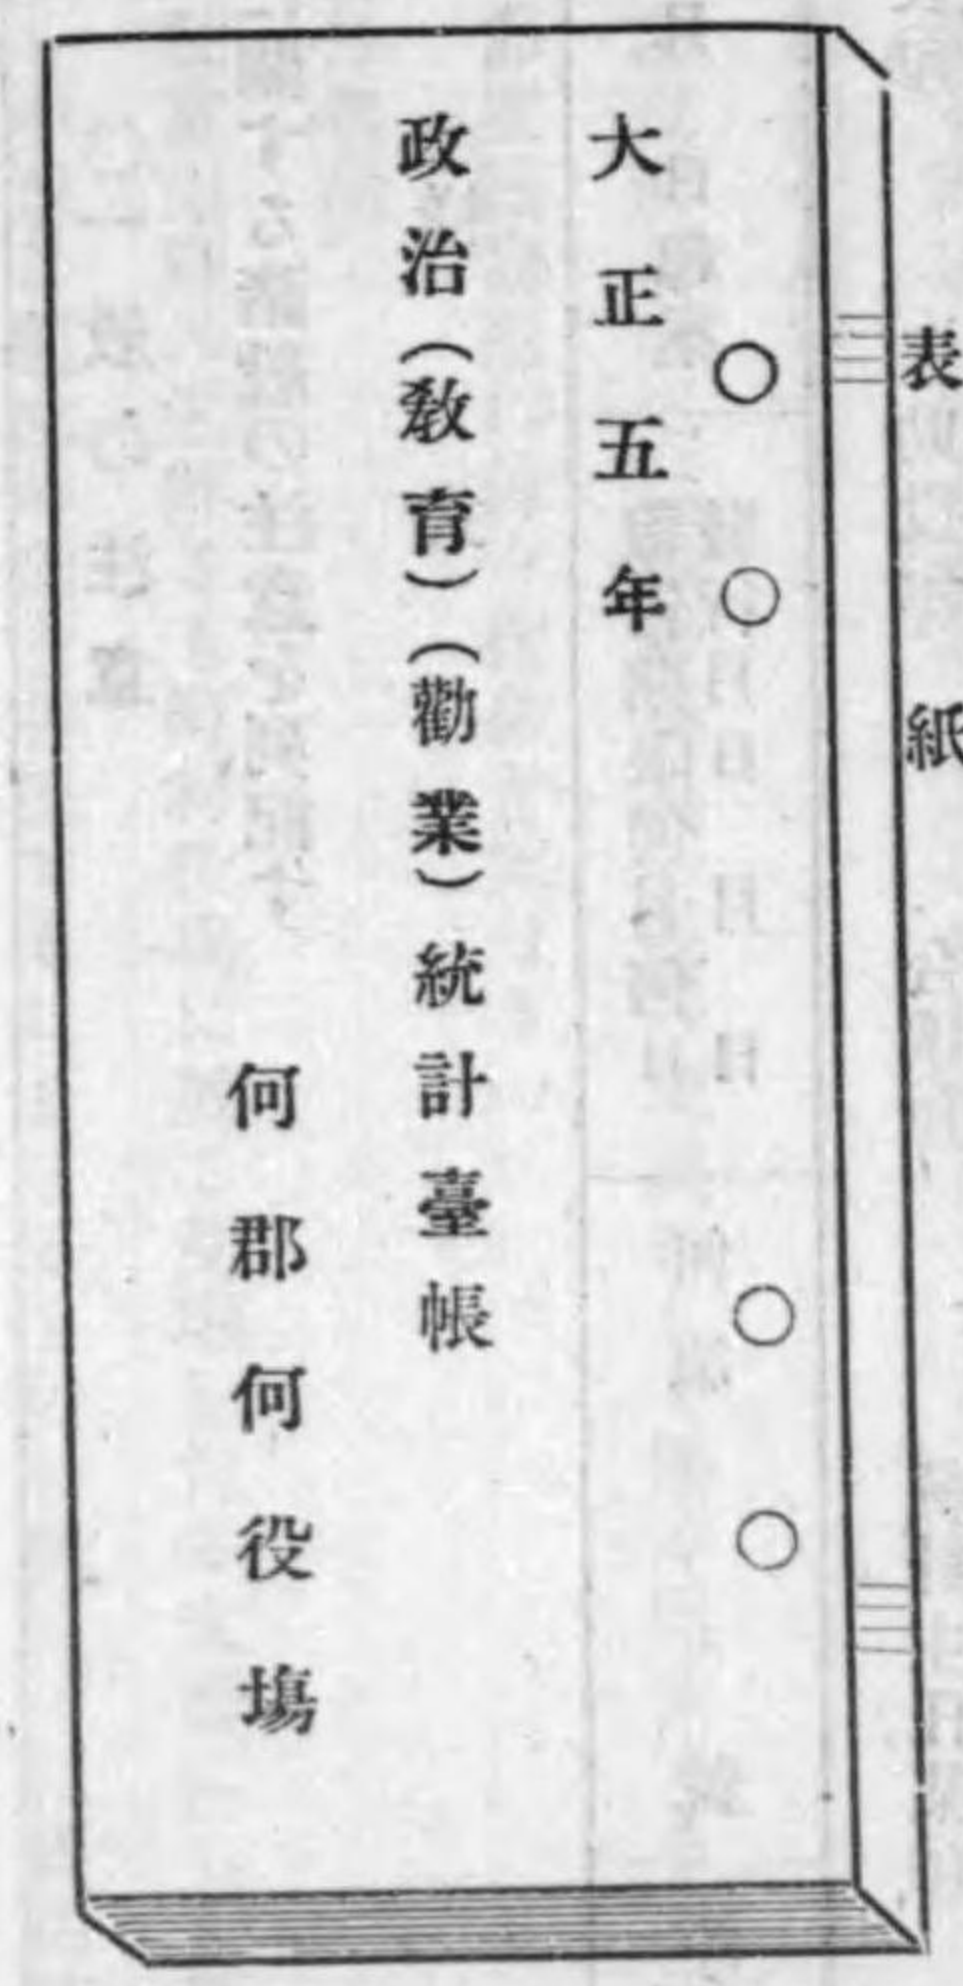 表紙
大正五年
政治(教育)(勸業)統計臺帳
何郡何役塲